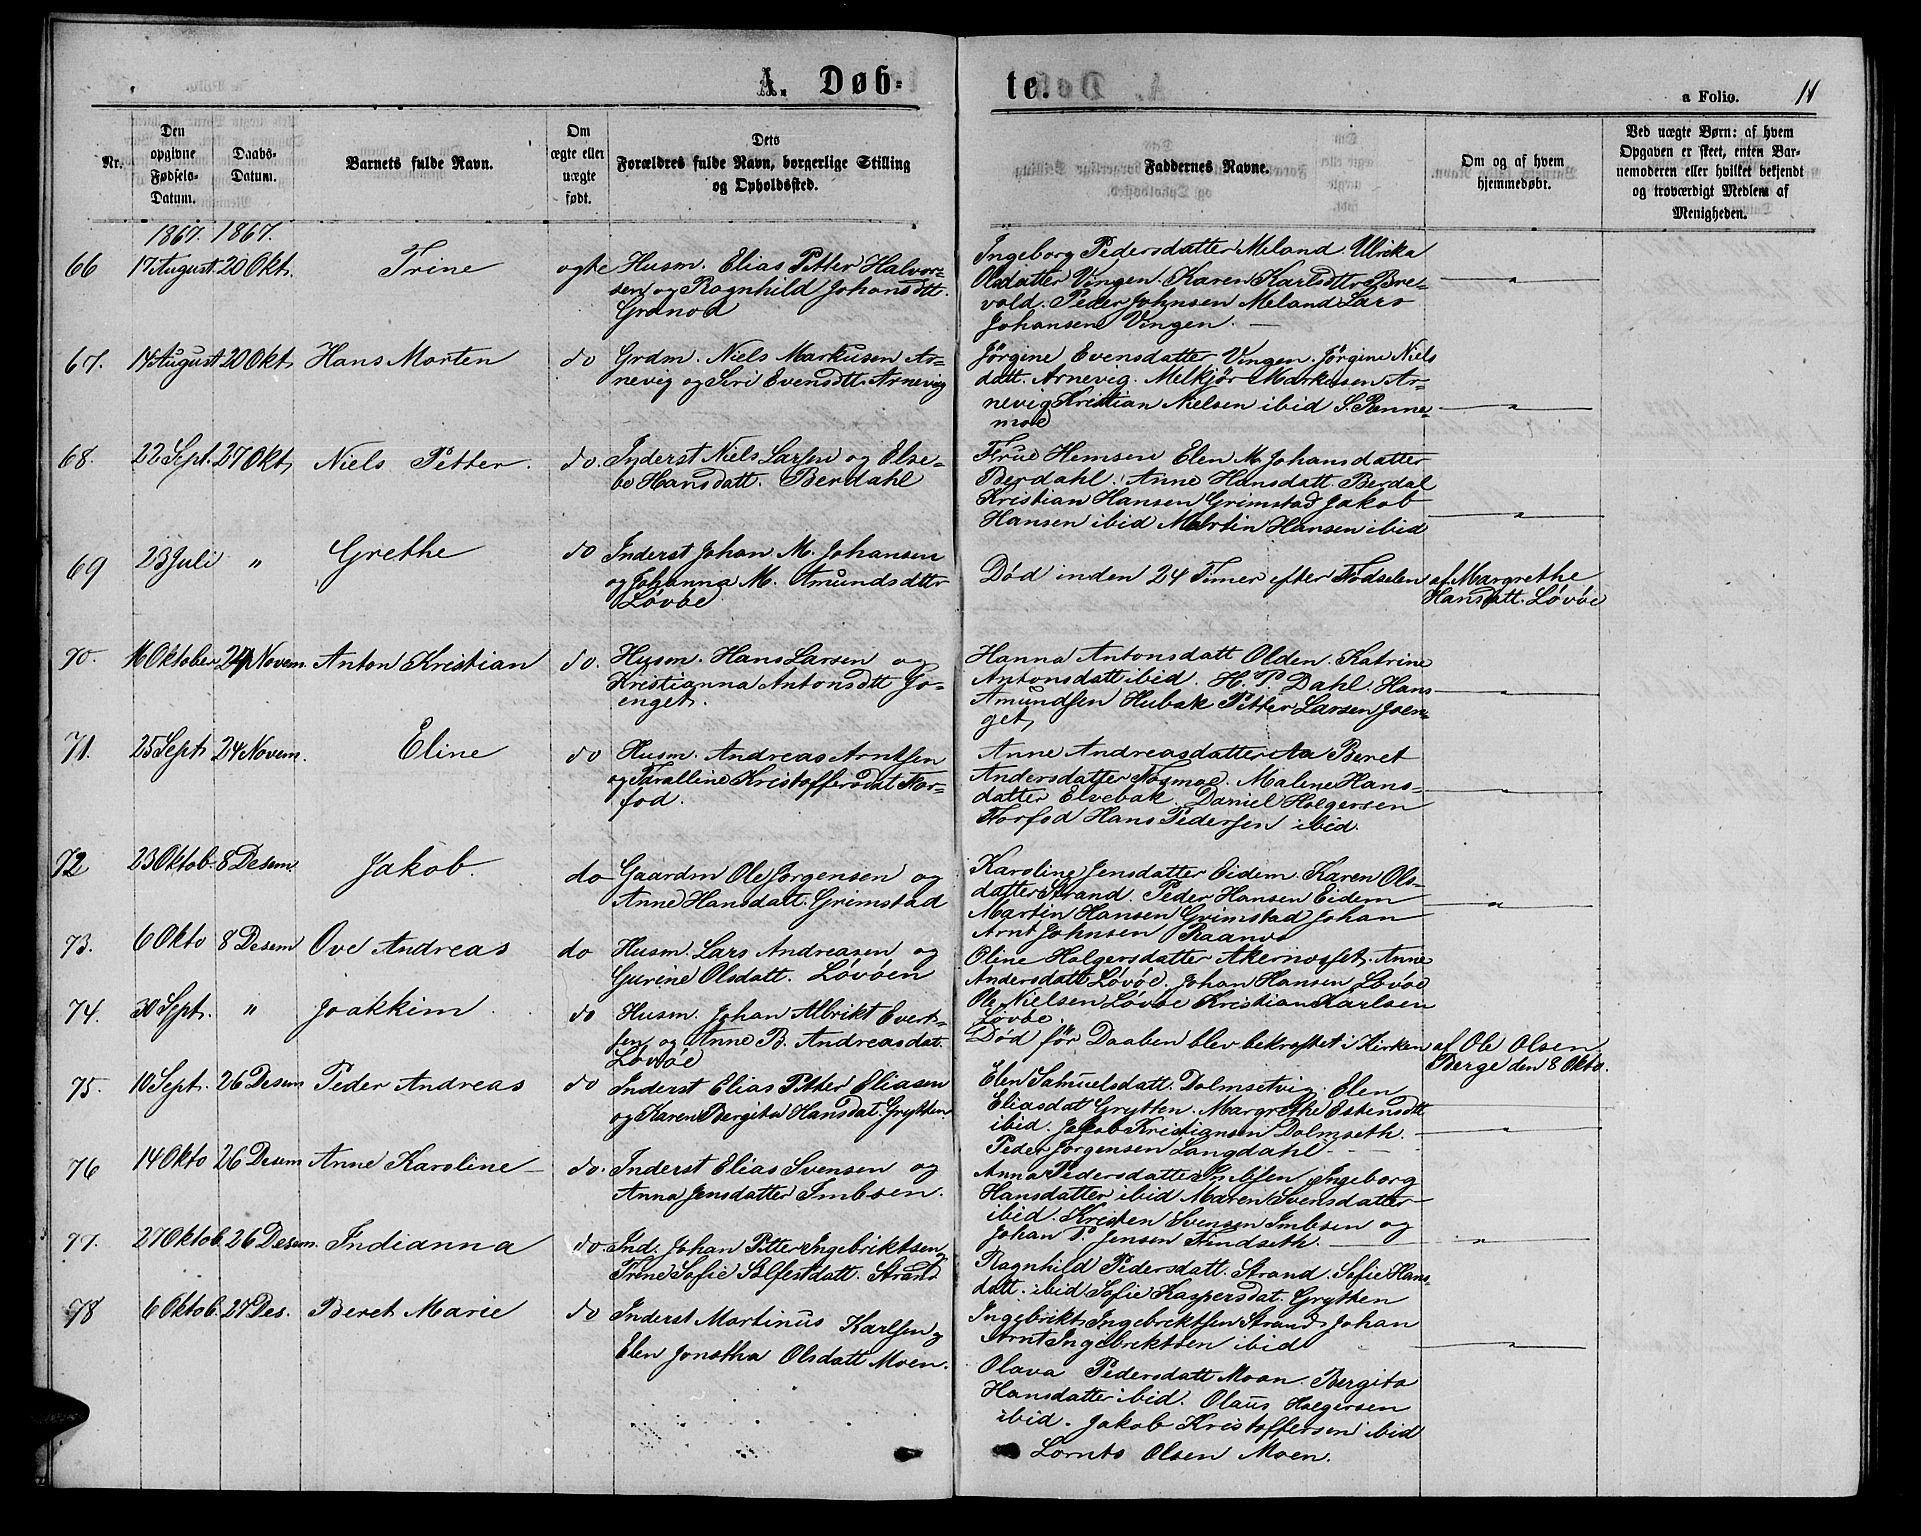 A. Døb-
te.
a Folio. 11
Nr.
Den opgivne Fødsels-Datum.
Daabs-Datum.
Barnets fulde Navn.
Om ægte eller uægte født.
Dets Forældres fulde Navn, borgerlige Stilling og Opholdssted.
Faddernes Navne.
Om og af hvem hjemmedøbt.
Ved uægte Børn: af hvem Opgaven er skeet, enten Barnemoderen eller hvilket bekjendt og troværdigt Medlem af Menigheden.
1867. 1867.
66 17 August 20 Okt. Trine ægte Husm. Elias Petter Halvor-
sen og Ragnhild Johansdtt.
Grønød
Ingeborg Pedersdatter Meland. Ulrika
Olsdatter Vingen. Karen Karlsdttr Bre-
vold. Peder Johnsen Meland Lars
Johansen Vingen. —
67. 14 August 20 Okt. Hans Morten do Grdm. Niels Markusen Ar-
nevig og Siri Evensdtt. Arnevig
Jørgine Evensdatter Vingen. Jørgine Niels
datt. Arnevig. Melkjør Markusen Ar-
nevig Kristian Nielsen ibid S. Renne-
moe
68. 22 Sept. 27 Okt. Niels Petter. do. Inderst Niels Larsen og Else-
be Hansdatt. Berdahl
Frue Hemsen Elen M. Johansdatter
Berdahl. Anne Hansdatt. Berdal
Kristian Hansen Grimstad Jakob
Hansen ibid Martin Hansen ibid
69 23 Juli " Grethe do Inderst Johan M. Johansen
og Johanna M. Amundsdttr
Løvøe
Død inden 24 Timer efter Fødselen af Margrethe
Hansdatt. Løvøe
70. 16 Oktober 24 Novem. Anton Kristian do. Husm. Hans Larsen og
Kristianna Antonsdtt Jo-
enget.
Hanna Antonsdatt Olden. Katrine
Antonsdatt ibid. H. P. Dahl. Hans
Amundsen Hubak Petter Larsen Joen-
get
71. 25 Sept. 24 Novem. Eline do Husm. Andreas Arntsen
og Kristoffersdat For-
fod.
Anne Andreasdatter Aa Beret
Andersdatter Fosmoe. Malene Hans-
datter Elvebak. Daniel Holgersen
Forfod Hans Pedersen ibid.
72 23 Oktob. 8 Desem. Jakob. do Gaardm Ole Jørgensen og
Anne Hansdatt. Grimstad
Karoline Jensdatter Eidem. Karen Ols-
datter Strand. Peder Hansen Eidem
Martin Hansen Grimstad Johan
Arnt Johnsen Raanes
73. 6 Okto 8 Desem Ove Andreas do Husm. Lars Andreasen og
Gurine Olsdatt. Løvøen
Oline Holgersdatter Akernosset. Anne
Andersdatt Løvøe. Johan Hansen Løvøe
Ole Nielsen Løvøe Kristian Karlsen
Løvøe.
74. 30 Sept. " Joakkim do Husm. Johan Albrikt Evert-
sen og Anne B. Andreasdat.
Løvøe
Død før Daaben blev bekræftet i Kirken af Ole Olsen
Berge den 8 Okto.
75. 10 Sept. 26 Desem Peder Andreas do Inderst Elias Petter Eliasen
og Karen Bergita Hansdat. Grytten.
Elen Samuelsdatt. Dolmsetvig. Elen
Eliasdat Grytten. Margrethe Estensdtt
ibid. Jakob Kristiansen Dolmseth.
Peder Jørgensen Langdahl
76 14 Okto 26 Desem Anne Karoline do. Inderst Elias Svensen og
Anna Jensdatter Imbsen.
Anna Pedersdatter Imbsen Ingeborg
Hansdatter ibid Maren Svensdatter
ibid. Kristen Svensen Imbsen og
Johan P. Jensen Findseth.
77. 27 Oktob. 26 Desem. Indianna do. Ind. Johan Petter Ingebriktsen og
Trine Sofie Solfestdatt. Strand
Ragnhild Pedersdatt. Strand. Sofie Hans-
datt. ibid Sofie Kaspersdat. Grytten
Ingebrikt Ingebriktsen Strand Johan
Arnt Ingebriktsen ibid
78 6 Oktob. 27 Des. Beret Marie do Inderst Martinus Karlsen og
Elen Jonetha Olsdatt Moen.
Olava Pedersdatt Moan Bergita
Hansdatter ibid. Olaus Holgersen
ibid. Jakob Kristoffersen ibid
Lornts Olsen Moen.